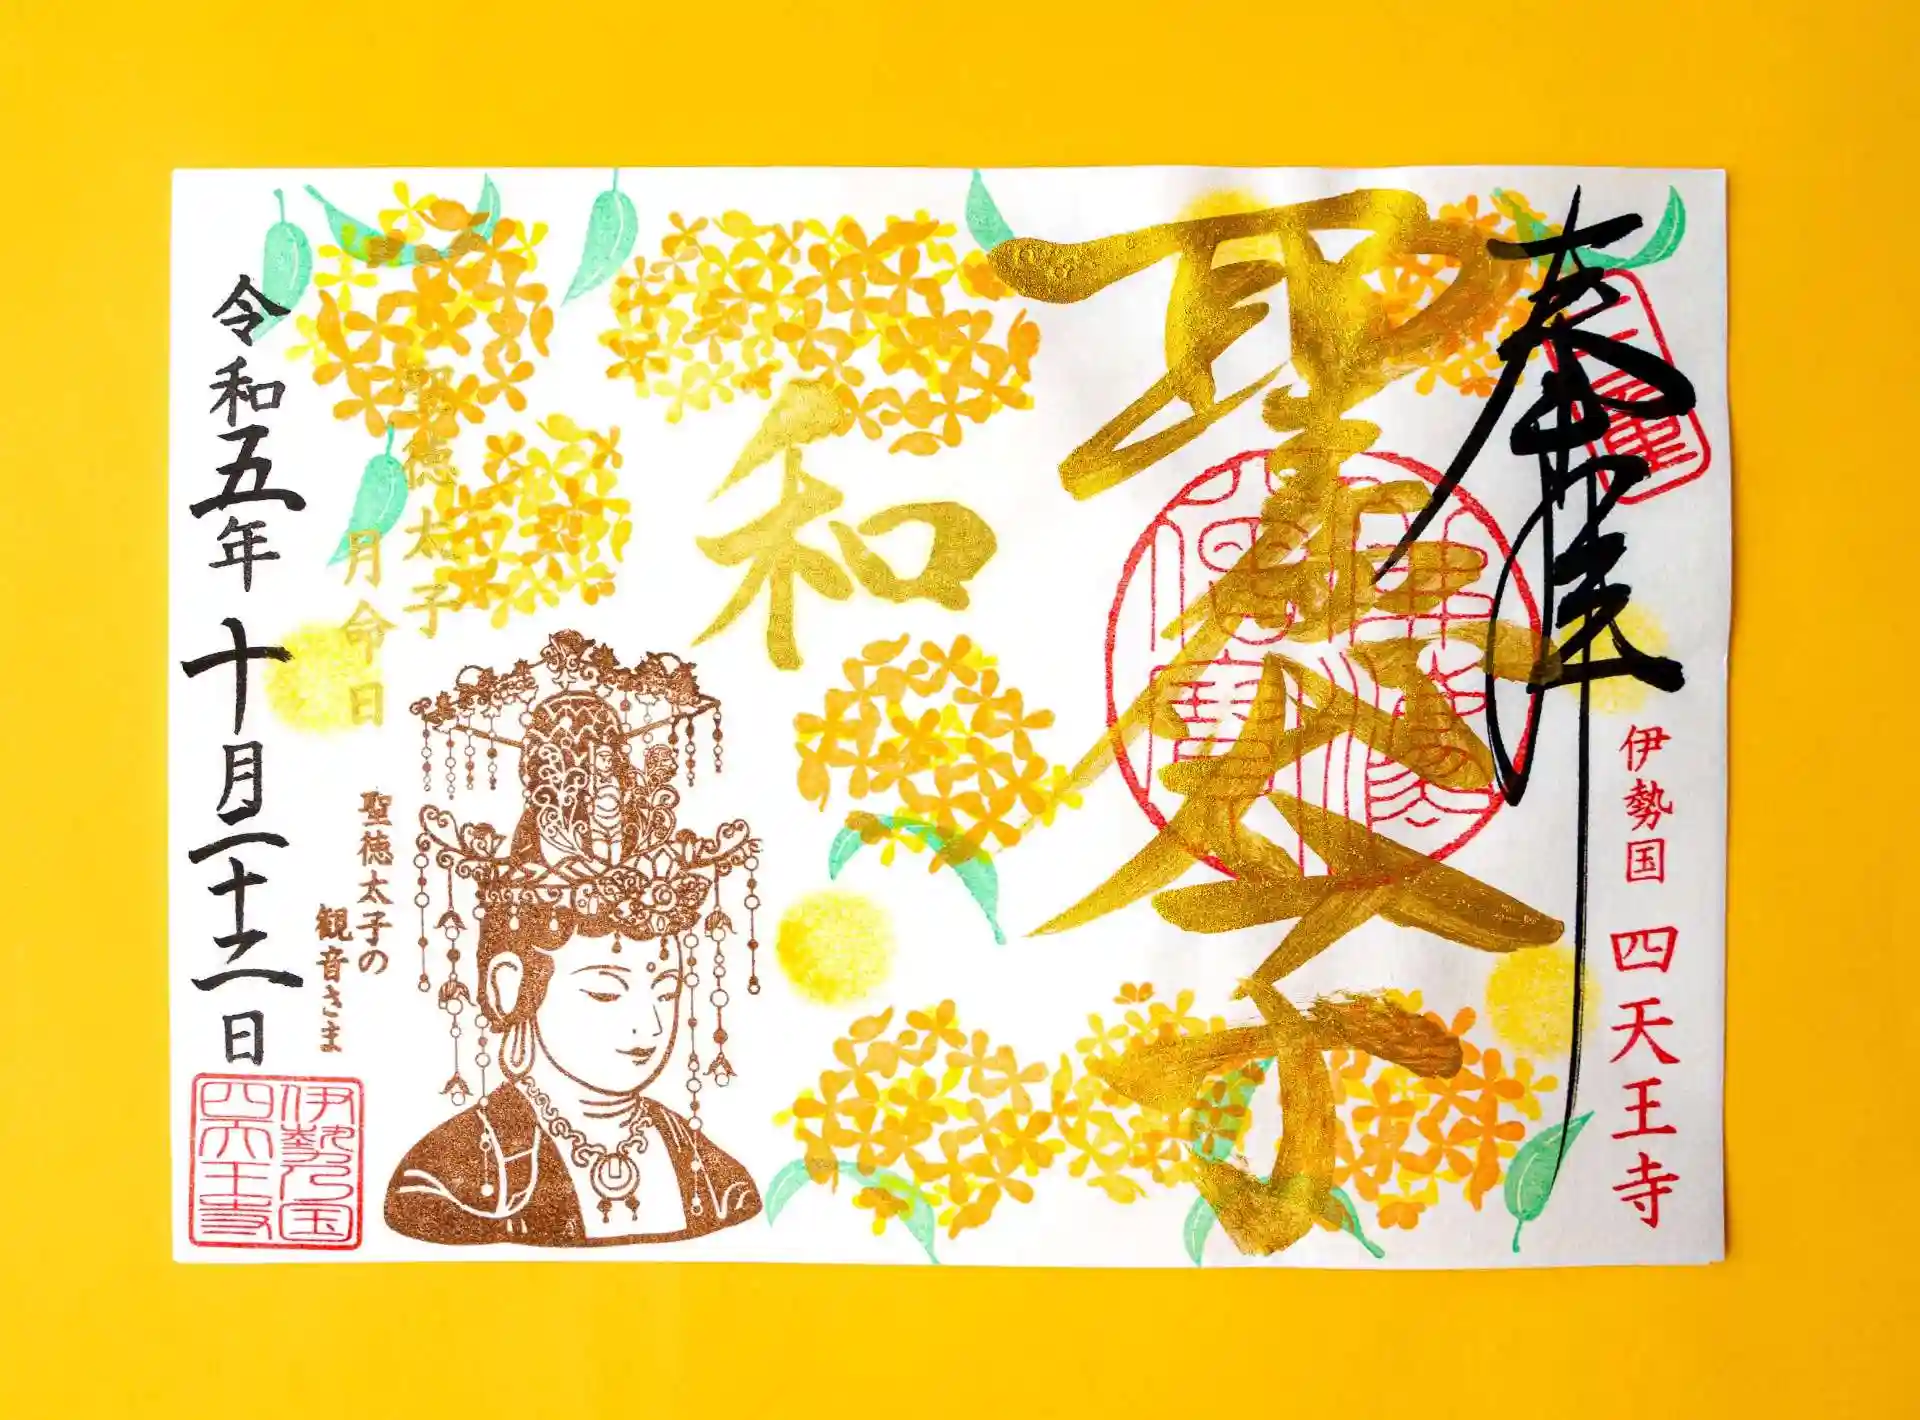 奉拝
伊勢国 四天王寺
聖徳太子
和
聖徳太子
月命日
聖徳太子の
観音さま
令和五年十月二十二日
伊勢国
四天王寺